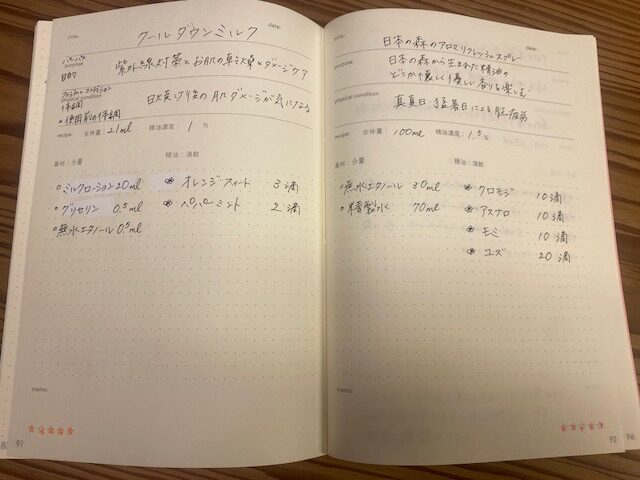 title:
date:
クールダウンミルク
purpose
目的
紫外線対策とお肌の乾燥とダメージケア
physical condition
体調
日焼け後の肌ダメージが気になる
使用前の体調
recipe: 全体量: 21ml 精油濃度: 1 %
基材:分量 精油:滴数
ミルクローション20ml オレンジスイート 3滴
グリセリン 0.5ml ペパーミント 2滴
無水エタノール 0.5ml
memo
91
title:
date:
日本の森のアロマリフレッシュスプレー
purpose
日本の森から生まれた精油の
どこか懐しく優しい香りを楽しむ
physical condition
真夏日 猛暑日による脳疲労
recipe: 全体量: 100ml 精油濃度: 1.5 %
基材:分量 精油:滴数
無水エタノール 30ml クロモジ 10滴
精製水 70ml アスナロ 10滴
モミ 10滴
ユズ 20滴
memo
92